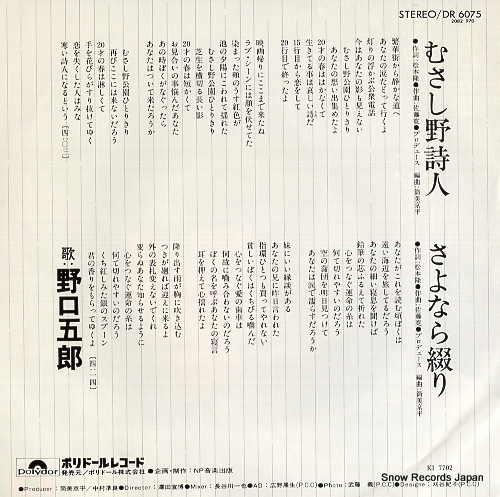 STEREO/DR 6075
2063 970
むさし野詩人
●作詞:松本隆●作曲:佐藤寛●プロデュース・編曲:筒美京平
繁華街から静かな道へ
あなたの涙たどって行くよ
灯りの浮かぶ公衆電話
今はあなたの影も見えない
むさし野公園ひとりきり
あなたの想い出集めたよ
20才の春ははかなくて
生きてる事は哀しい詩だ
15行目から恋をして
20行目で終ったよ
映画帰りにここまで来たね
ラブ・シーンには顔を伏せてた
染まった頬のうす紅色が
池の夕陽にこわれて揺れた
むさし野公園ひとりきり
芝生を横切る長い影
20才の春は短かくて
お見合いの事悩んだあなた
あの時ぼくがなぐったら
あなたはついて来ただろうか
むさし野公園ひとりきり
再びここには来ないだろう
20才の春は淋しくて
手を花びらがすり抜けてゆく
恋を失くした人はみな
寒い詩人になるという [四・〇三]
さよなら綴り
●作詞:松本隆●作曲:佐藤寛●プロデュース・編曲:筒美京平
あなたがこれを読む頃ぼくは
遠い海辺を旅してるだろう
あなたの細い寝息を聞けば
鉛筆の芯ふるえて折れた
心をつなぐ運命の糸は
何て切れやすいのだろう
空の蒲団を明日見つけて
あなたは涙で濡らすだろうか
妹にいい縁談がある
あなたの兄に昨日言われた
指環ひとつも買ってやれない
貧しいぼくはくちびる噛んだ
心をつなぐ愛の歯車は
何故に噛み合わないのだろう
ぼくの名を呼ぶあなたの寝言
耳を押えて心揺れたよ
降り出す雨が胸に吹き込む
つきが廻れば迎えに来るよ
外の表札変えないでくれ
変らぬあなた知らせるように
心をつなぐ運命の糸は
何て切れやすいのだろう
くち紅しみた銀のスプーン
君の香りをもらってゆくよ [四・一四]
歌・野口五郎
polydor
ポリドールレコード
発売元/ポリドール株式会社
●企画・制作:NP音楽出版
KI 7702
●Producer:筒美京平/中村準良●Director:澤田宣博●Mixer:長谷川一也●AD:広野展生(P.C.C)●Photo:武藤 義(P.C.C)●Designe:刈谷紀子(P.C.C)
Snow Records Japan